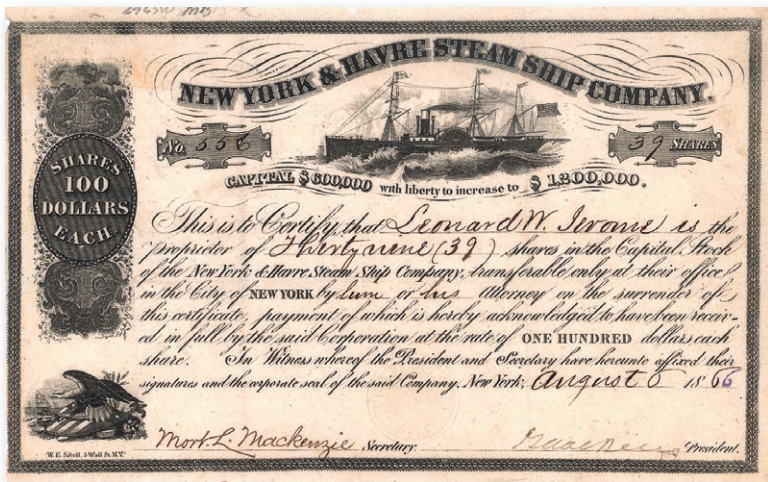 NEW YORK & HAVRE STEAM SHIP COMPANY.
No. 556
39 SHARES
CAPITAL $600,000 with liberty to increase to $1,200,000.
SHARES
100
DOLLARS
EACH
This is to Certify that Leonard W. Jerome is the
proprietor of Thirty nine (39) shares in the Capital Stock
of the New York & Havre Steam Ship Company, transferable only at their office
in the City of NEW YORK by him or his Attorney on the surrender of
this certificate, payment of which is hereby acknowledged to have been receiv-
ed in full by the said Corporation at the rate of ONE HUNDRED dollars each
share. In Witness whereof the President and Secretary have hereunto affixed their
signatures and the corporate seal of the said Company, New York, August 6 1866
Mort. L. Mackenzie Secretary. President.
W. E. Sibell, 5 Wall St. N.Y.